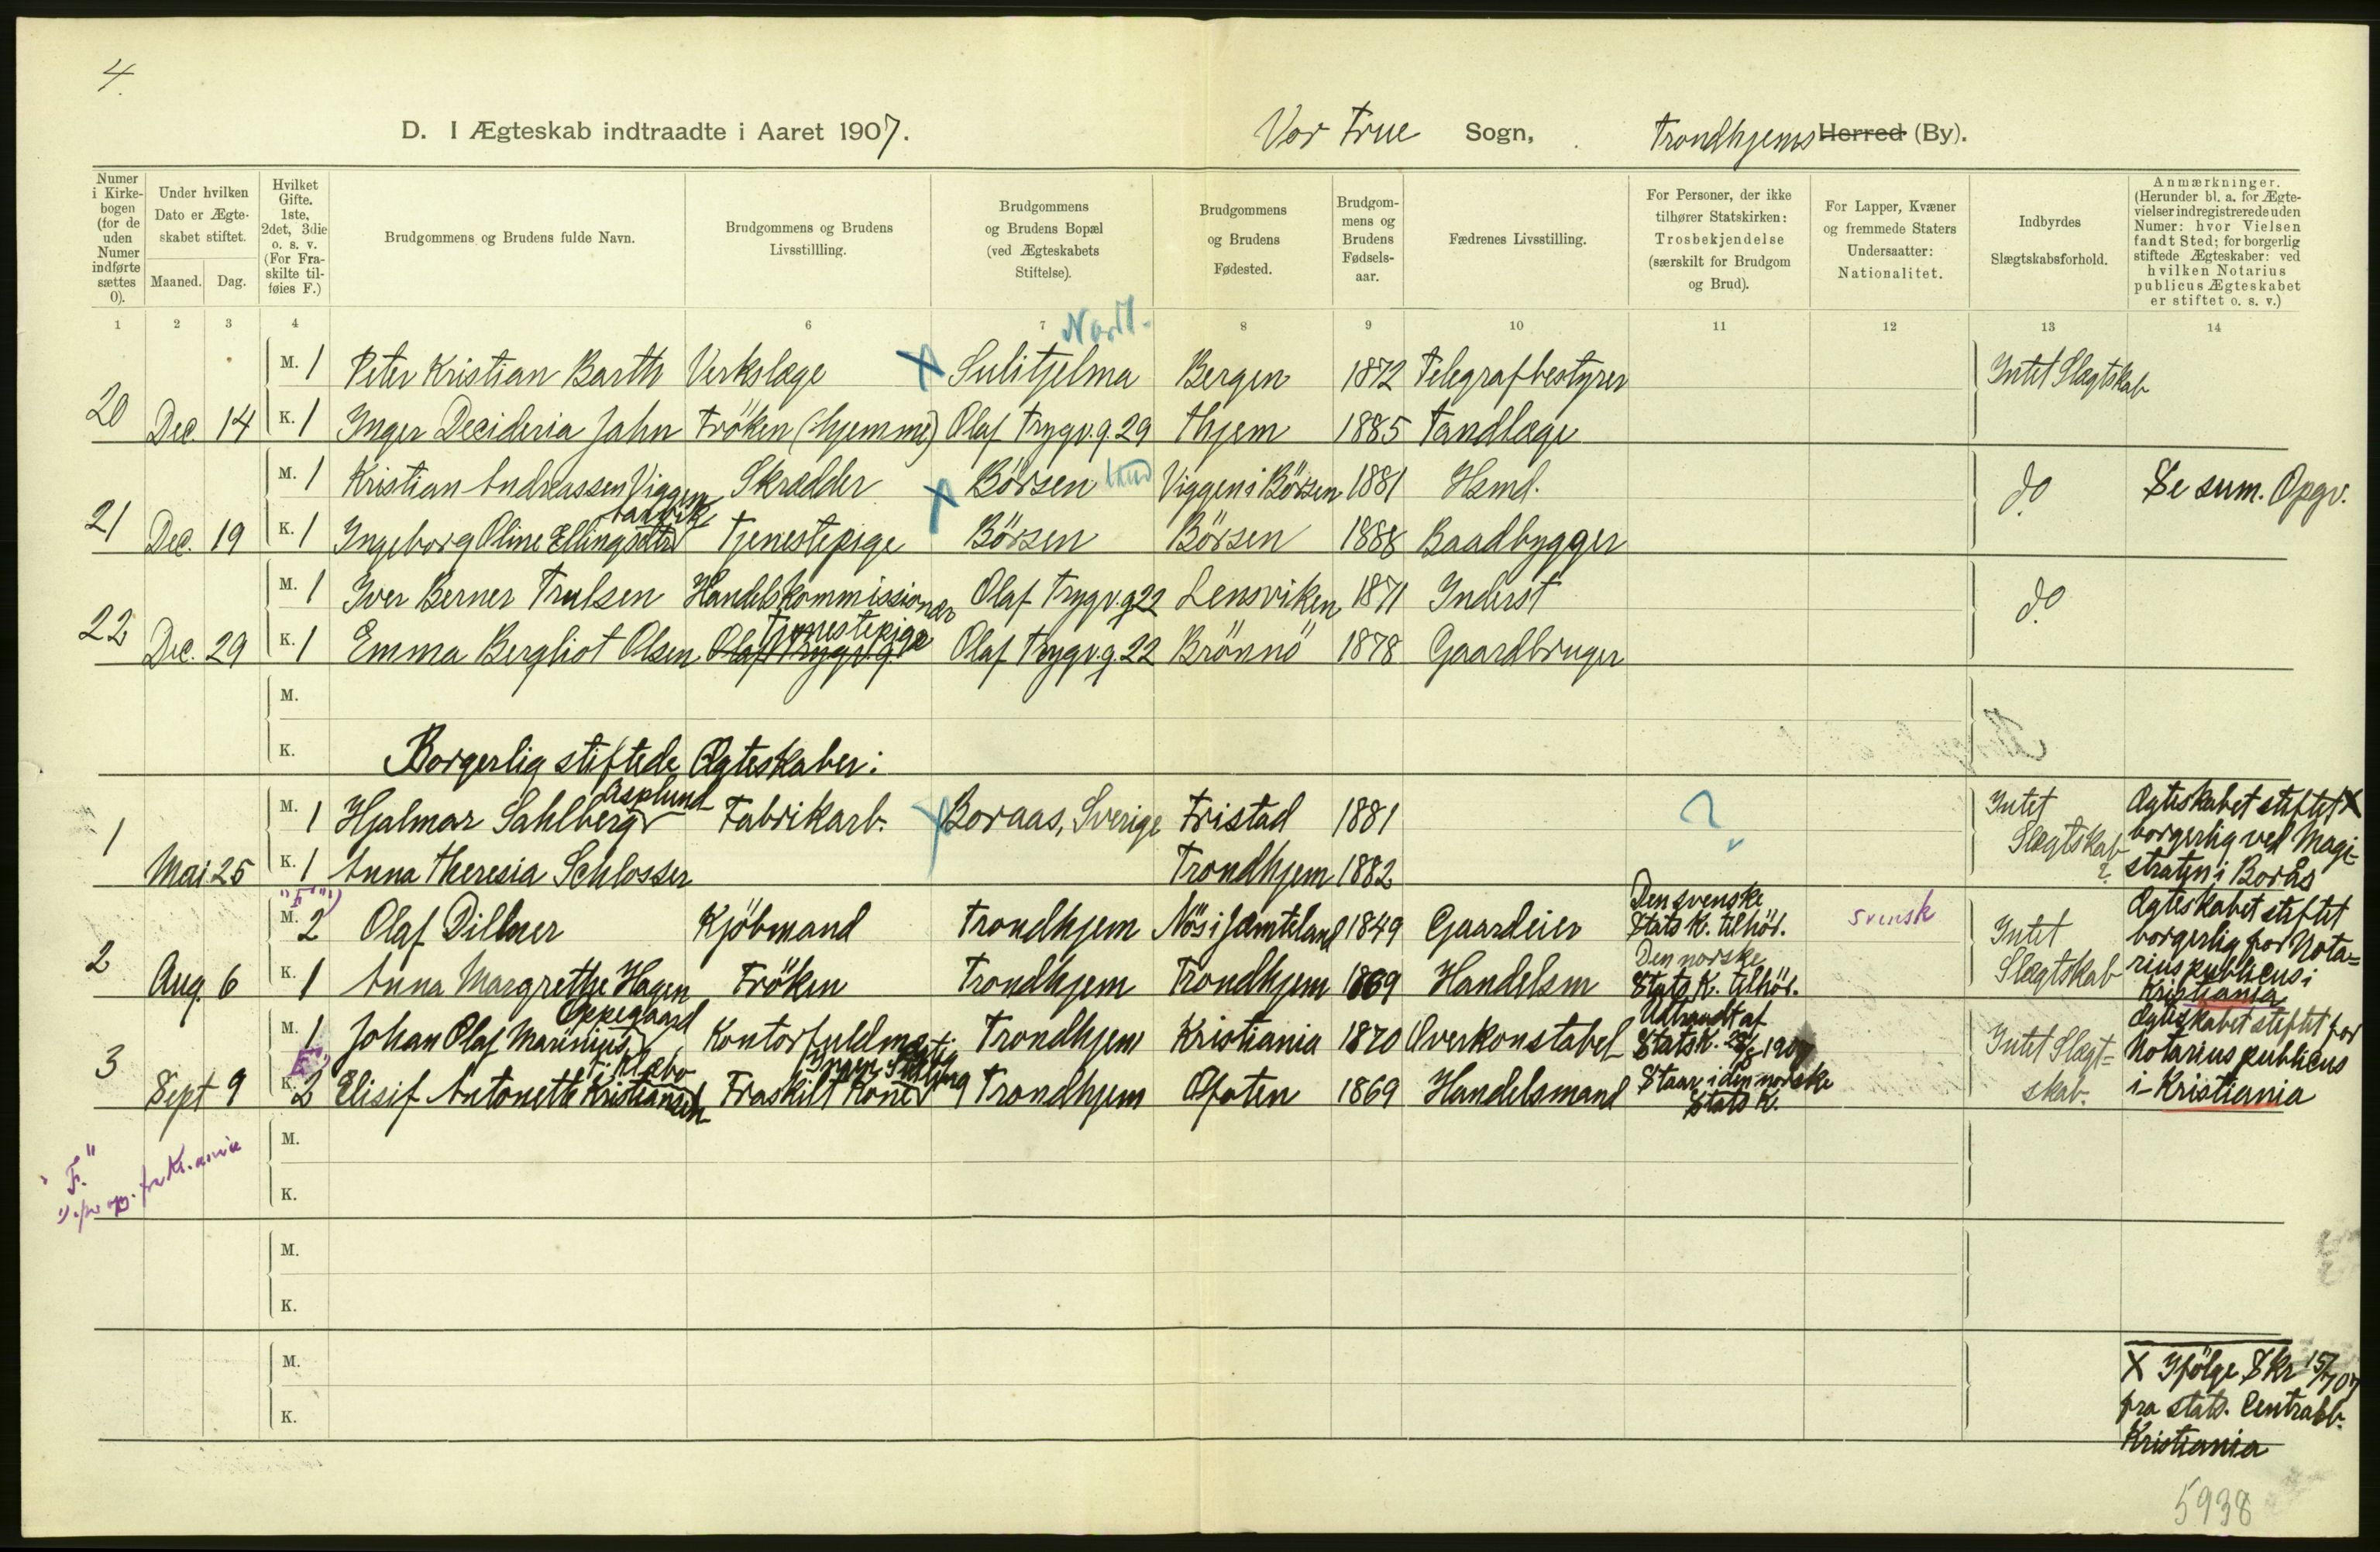 4.
D. I Ægteskab indtraadte i Aaret 1907. Vor Frue Sogn, Trondhjems Herred (By).
Numer i Kirkebogen (for de uden Numer indførte sættes 0).
Under hvilken Dato er Ægteskabet stiftet.
Maaned. Dag.
Hvilket Gifte. 1ste, 2det, 3die o. s. v. (For Fraskilte tilføies F.)
Brudgommens og Brudens fulde Navn.
Brudgommens og Brudens Livsstillling.
Brudgommens og Brudens Bopæl (ved Ægteskabets Stiftelse).
Brudgommens og Brudens Fødested.
Brudgommens og Brudens Fødselsaar.
Fædrenes Livsstilling.
For Personer, der ikke tilhører Statskirken: Trosbekjendelse (særskilt for Brudgom og Brud).
For Lapper, Kvæner og fremmede Staters Undersaatter: Nationalitet.
Indbyrdes Slægtskabsforhold.
Anmærkninger. (Herunder bl. a. for Ægtevielser indregistrerede uden Numer: hvor Vielsen fandt Sted; for borgerlig stiftede Ægteskaber: ved hvilken Notarius publicus Ægteskabet er stiftet o. s. v.)
1 2 3 4 6 7 8 9 10 11 12 13 14
Nordl.
M. 1 Peter Kristian Barth Verkslæge X Sulitjelma Bergen 1872 Telegrafbestyrer Intet Slægtskab
20 Dec. 14 K. 1 Inger Decideria Jahn Frøken (hjemme) Olaf Trygv.g. 29 Thjem 1885 Tandlæge
M. 1 Kristian Andreassen Viggen Skrædder X Börsen Viggen i Börsen 1881 Hsmd. do. Se sum. Opgv.
21 Dec. 19 K. 1 Ingeborg Oline Ellingsdtr Tjenestepige Börsen Börsen 1888 Baadbygger
M. 1 Iver Berner Trulsen Handelskommissionær Olaf Trygv.g 22 Lensviken 1871 Inderst do.
Tjenestepige
22 Dec. 29 K. 1 Emma Bergliot Olsen Olaf Trygv.g Olaf Trygv.g. 22 Brönnö 1878 Gaardbruger
M.
K. Borgerlig stiftede Ægteskaber:
Asplund
M. 1 Hjalmar Sahlberg Fabrikarb. Boraas, Sverige Fristad 1881 ? Intet Slægtskab ?
1 Mai 25 K. 1 Anna Theresia Schlosser Trondhjem 1882
Ægteskabet stiftet X
borgerlig ved Magi-
straten i Borås
"F" 1)
M. 2 Olaf Dillner Kjöbmand Trondhjem Nös i Jämteland 1849 Gaardeier Den svenske Stats K. tilhör. svensk Intet Slægtskab
2 Aug. 6 K. 1 Anna Margrethe Hagen Fröken Trondhjem Trondhjem 1869 Handelsm Den norske Stats K. tilhör.
Ægteskabet stiftet
borgerlig for Nota=
rius publicus i
Kristiania
Oppegaard
M. 1 Johan Olaf Marinius Kontorfuldmægtig Trondhjem Kristiania 1870 Overkonstabel Udtraadt af Statsk. 1907 Intet Slægt=
skab.
"F"
3 Sept 9 K. 2 Elisif Antonette Kristiansen Fraskilt Kone Trondhjem Ofoten 1869 Handelsmand Staar i den norske Stats K.
Ægteskabet stiftet for
Notarius publicus
i Kristiania
M.
K.
"F."
1) fra Kr.ania
M.
K.
M.
K.
X Ifölge Skr 15/7 07
fra stat. Centralb.
Kristiania
5938